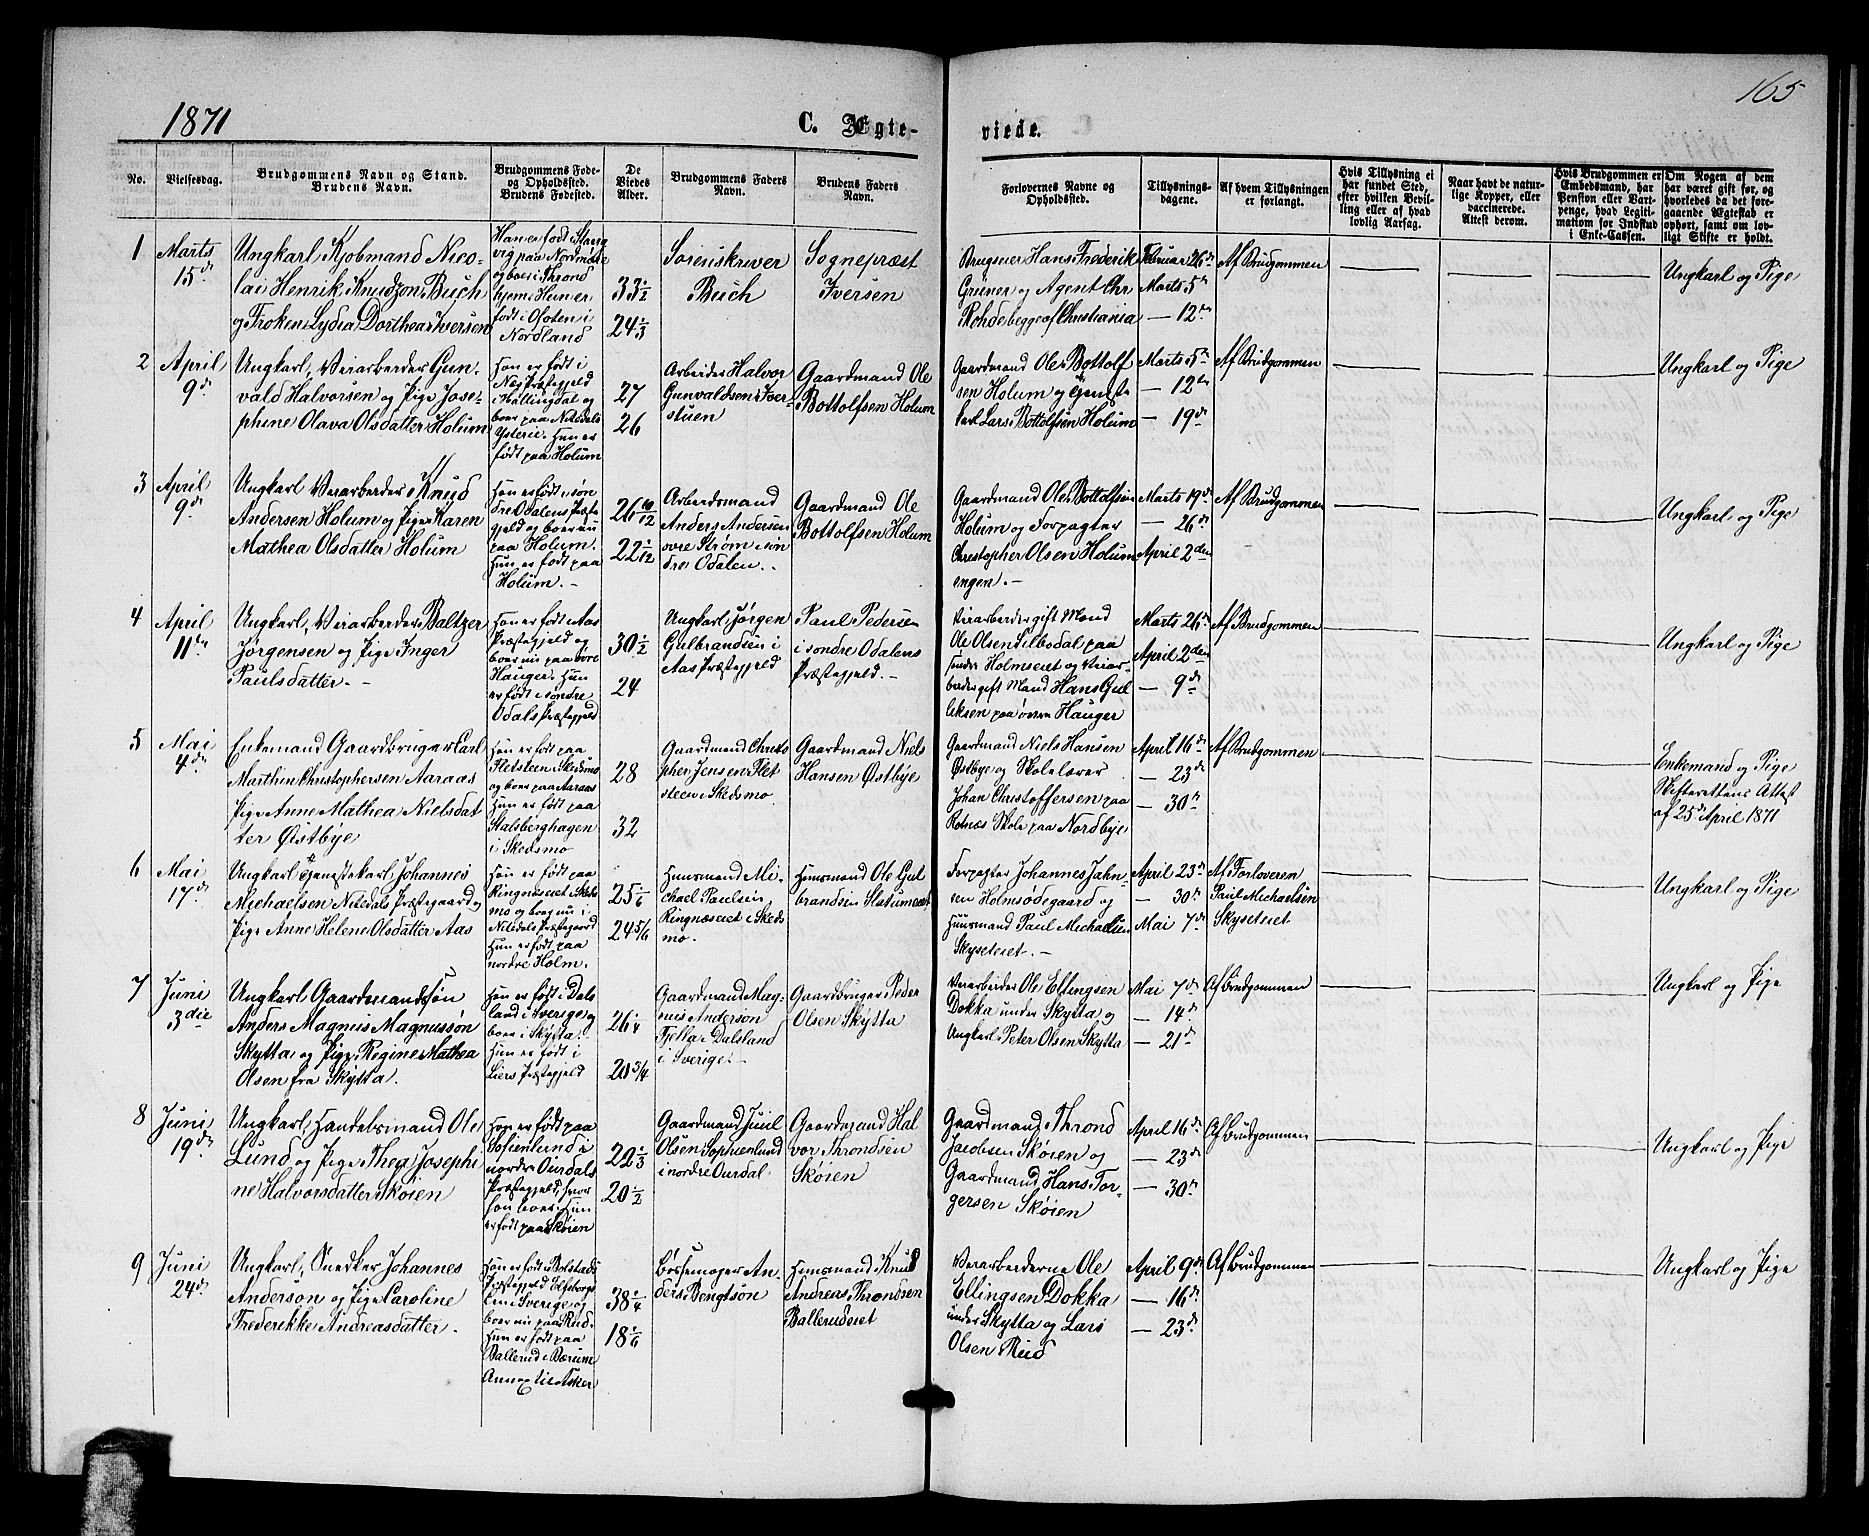 165
1871
C. Ægte-
viede.
No.
Vielsesdag.
Brudgommens Navn og Stand.
Brudens Navn.
Brudgommens Føde-
og Opholdssted.
Brudens Fødested.
De
Viedes
Alder.
Brudgommens Faders
Navn.
Brudens Faders
Navn.
Forlovernes Navne og
Opholdssted.
Tillysnings-
dagene.
Af hvem Tillysningen
er forlangt.
Hvis Tillysning ei
har fundet Sted,
efter hvilken Bevil-
ling eller af hvad
lovlig Aarsag.
Naar havt de natur-
lige Kopper, eller
vaccinerede.
Attest derom.
Hvis Brudgommen er
Embedsmand, har
Pension eller Vart-
penge, hvad Legiti-
mation for Indskud
i Enke-Cassen.
Om Nogen af dem
har været gift før, og
hvorledes da det fore-
gaaende Ægteskab er
ophørt, samt om lov-
ligt Skifte er holdt.
1
Marts
15de
Ungkarl Kjøbmand Nico-
lai Henrik Knudzon Buch
og Frøken Lydia Dorthea Iversen
Han er født i Stang
vig paa Nordmøre
og boer i Thrond
hjem. Hun er
født i Ofoten i
Nordland
33 1/2
24 1/3
Sorenskriver
Buch
Sognepræst
Iversen
Brugseier Hans Frederik
Grüner og Agent Chr
Rohde begge af Christiania
Februar 26de
Marts 5te
— 12te
Af Brudgommen
Ungkarl og Pige
2
April
9de
Ungkarl, Veiarbeider Gun-
vald Halvorsen og Pige Jose-
phine Olava Olsdatter Holum
Han er født i
Næs Præstegjeld
i Hallingdal og
boer paa Nitedals
Ysterie. Hun er
født paa Holum
27
26
Arbeider Halvor
Gunvaldsen Iver-
stuen
Gaardmand Ole
Bottolfsen Holum
Gaardmand Ole Bottolf
sen Holum og Tjeneste
karl Lars Bottolfsen Holum
Marts 5te
— 12te
— 19de
Af Brudgommen
Ungkarl og Pige
3
April
9de
Ungkarl Veiarbeider Knud
Andersen Holum og Pige Karen
Mathea Olsdatter Holum
Han er født i søn
dre Odalens Præste
gjeld og boer nu
paa Holum.
Hun er født paa
Holum. -
26 10/12
22 1/12
Arbeidsmand
Anders Andersen
ovre Strøm i søn
dre Odalen. -
Gaardmand Ole
Bottolfsen Holum
Gaardmand Ole Bottolfsen
Holum og Forpagter
Christopher Olsen Holum
engen. -
Marts 19de
— 26de
April 2den
Af Brudgommen
Ungkarl og Pige
4
April
11te
Ungkarl, Veiarbeider Baltzer
Jørgensen og Pige Inger
Paulsdatter. -
Han er født i Aas
Præstegjeld og
boer nu paa ovre
Hauger. Hun
er født i søndre
Odals Præstegjeld
30 1/2
24
Ungkarl Jørgen
Gulbrandsen i
Aas Præstegjeld
Paul Pedersen
i søndre Odalens
Præstegjeld. -
Veiarbeider gift Mand
Ole Olsen Silbodal paa
under Holmseiet og Veiar-
beider gift Mand Hans Gul
leksen paa øvre Hauger
Marts 26de
April 2den
— 9de
Af Brudgommen
Ungkarl og Pige
5
Mai
4de
Enkemand Gaardbruger Carl
Marthin Christophersen Aaraas
Pige Anne Mathea Nielsdat
ter Østbye
Han er født paa
Fletsteen i Skedsmo
og boer paa Aaraas
Hun er født paa
Stalsberghagen
i Skedsmo
28
32
Gaardmand Christo
pher Jensen Flet
steen i Skedsmo
Gaardmand Niels
Hansen Østbye
Gaardmand Niels Hansen
Østbye og Skolelærer
Johan Christoffersen paa
Rotnæs Skole paa Nordbye
April 16de
— 23de
— 30te
Af Brudgommen
Enkemand og Pige
Skifterettens Attest
af 25de April 1871
6
Mai
17de
Ungkarl Tjenestekarl Johannes
Michaelsen Nitedals Præstegaard og
Pige Anne Helene Olsdatter Aas
Han er født paa
Ringnæseiet i Skeds
mo og boer nu i
Nitedals Præstegaard
Hun er født paa
nordre Holm.
25 1/6
24 5/6
Huusmand Mi-
chael Paulsen
Ringnæseiet i Skeds
mo.
Huusmand Ole Gul
brandsen Slatumeiet
Forpagter Johannes Jahn-
sen Holmsødegaard og
Huusmand Paul Michaelsen
Skyseteiet. -
April 23de
— 30te
Mai 7de
Af Forloveren
Paul Michaelsen
Skyseteiet
Ungkarl og Pige
7
Juni
3die
Ungkarl Gaardmandssøn
Anders Magnus Magnussøn
Skytta og Pige Regine Mathea
Olsen fra Skytta.
Han er født i Dals
land i Sverige og
boer i Skytta.
Hun er født i
Liers Præstegjeld
26 1/4
20 3/4
Gaardmand Mag-
nus Anderson
Fjella Dalsland
i Sverige -
Gaardbruger Peder
Olsen Skytta
Veiarbeider Ole Ellingsen
Dokka under Skytta og
Ungkarl Peter Olsen Skytta
Mai 7de
— 14de
— 21de
Af Brudgommen
Ungkarl og Pige
8
Juni
19de
Ungkarl, Handelsmand Ole
Lund og Pige Thea Josephi
ne Halvorsdatter Skøien
Han er født paa
Sofienlund i
nordre Ourdals
Præstegjeld, hvor
han boer. Hun
er født paa Skøien
22 2/3
20 1/2
Gaardmand Juul
Olsen Sophienlund
i nordre Ourdal
Gaardmand Hal
vor Throndsen
Skøien
Gaardmand Thrond
Jacobsen Skøien og
Gaardmand Hans Tor-
gersen Skøien
April 16de
— 23de
— 30te
Af Brudgommen
Ungkarl og Pige
9
Juni
24de
Ungkarl, Snedker Johannes
Anderson og Pige Caroline
Frederikke Andreasdatter.
Han er født i Bolstads
Præstegjeld Elfsborgs
Len i Sverige og
boer nu paa Rud.
Hun er født paa
Ballerud i Bærums
Annex til Asker
38 1/4
18 1/6
Bøssemager An-
ders Bengtsøn
Huusmand Knud
Andreas Throndsen
Balleruseiet
Veiarbeiderne Ole
Ellingsen Dokka
under Skytta og Lars
Olsen Rud
April 9de
— 16de
— 23de
Af Brudgommen
Ungkarl og Pige